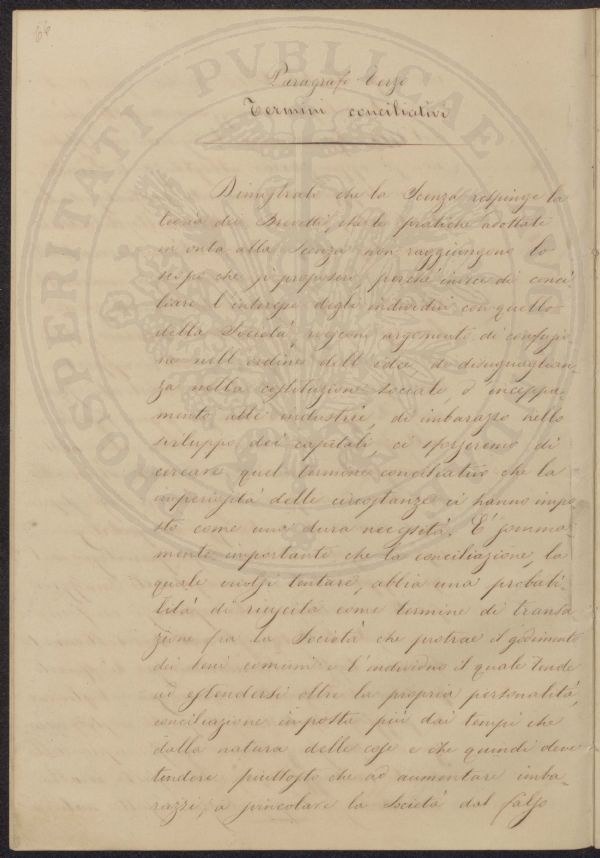 66
PROSPERITATI PVBLICAE
Paragrafo Terzo
Termini conciliativi
Dimostrati che la Scienza respinge la
teoria dei Brevetti, che le pratiche adottati
in onta alla Scienza non raggiungono lo
scopo che si proposero, perché invece di conci-
liare l'interesse degli individui con quello
della Società, riescono argomento di confusio-
ne nell'ordine dell'idee, di disuguaglian-
za nella costituzione sociale, d'inceppa-
mento alle industrie, di imbarazzo nello
sviluppo dei capitali, ci sforzeremo di
cercare quel termine conciliativo che la
imperiosità delle circostanze ci hanno impo-
sto come una dura necessità. É somma-
mente importante che la conciliazione, la
quale vuolsi tentare, abbia una probabi-
lità di riuscita come termine di transa-
zione fra la Società che protrae il godimento
dei beni comuni e l'individuo il quale tende
ad estendersi oltre la propria personalità,
conciliazione imposta più dai tempi che
dalla natura delle cose e che quindi deve
tendere piuttosto che ad aumentare imba-
razzi, a svincolare la Società dal falso